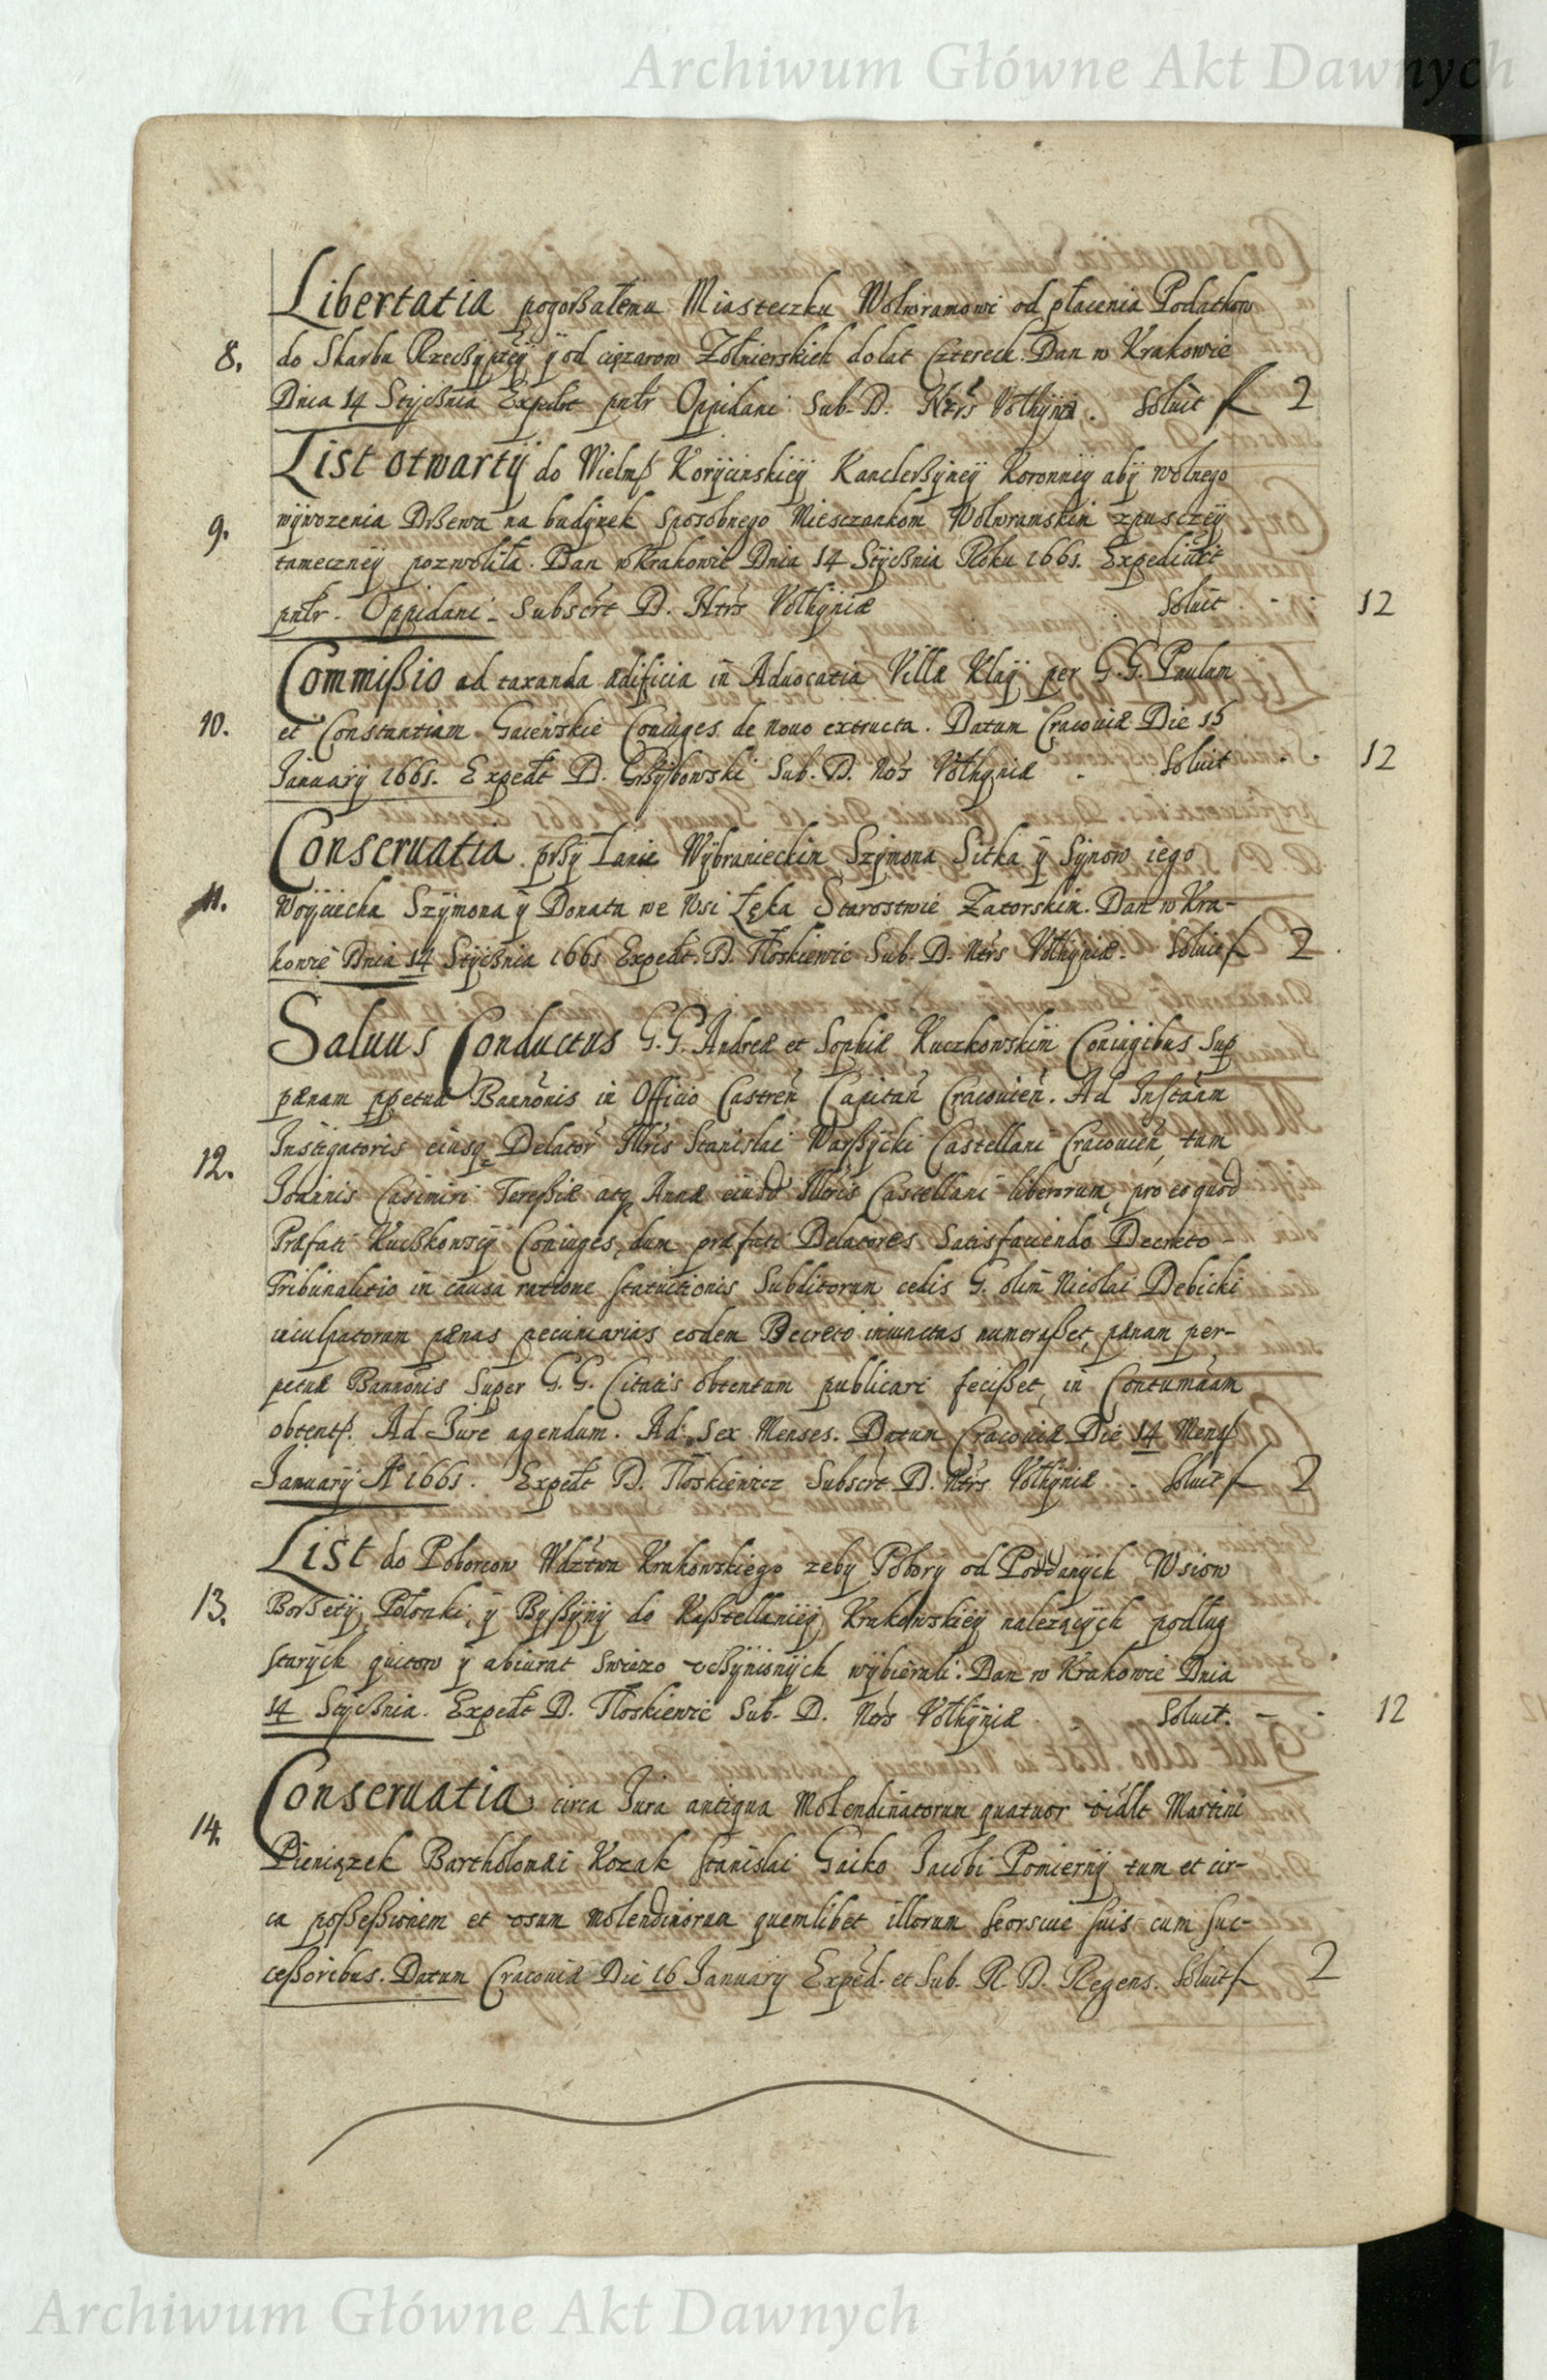 Archiwum Główne Akt Dawnych
Libertatia pogorßałemu Miasteczku Wolwramowi od płacenia Podatkow
8. do Skarbu Rzecßyptey ÿ od ciężarow Żołnierskich do lat Czterech. Dan w Krakowie
Dnia 14 Stÿcßnia Expedt pntr Oppidani Sub. D. Ntrs Volhÿniæ. Soluit f 2
List otwartÿ do Wielmß Korÿcinskieÿ Kanclerßÿneÿ Koronneÿ abÿ wolnego
9. wÿwozenia Drßewa na budÿnek sposobnego Miesczankom Wolwramskim zpusczeÿ
tameczneÿ pozwoliła. Dan w Krakowie Dnia 14 Stÿcßnia Roku 1661. Expediuit
pntr. Oppidani Subscrt D. Ntrs Volhÿniæ Soluit - - 12
Commißio ad taxanda ædificia in Aduocatia Villæ Klaÿ per G.G. Paulum
10. et Constantiam Gacienskie Coniuges de nouo extructa. Datum Cracouiæ Die 15
Januarÿ 1661. Expedt D. Grßÿbowski Sub. D. Nors Volhyniæ . Soluit . . 12
Conseruatia prßÿ Łanie Wÿbranieckim Szÿmona Sitka ÿ Sÿnow iego
11. Woÿciecha Szÿmona ÿ Donata we Wsi Łęka Starostwie Zatorskim. Dan w Kra-
kowie Dnia 14 Stÿcßnia 1661 Expedt. D. Tłoskiewic Sub. D. Ntrs Volhÿniæ. Soluit f 2.
Saluus Conductus G.G. Andreæ et Sophiæ Kuczkowskim Coniugibus Sup
pænam ppetuæ Bannonis in Officio Castren Capitan Cracouien. Ad Instanm
12. Instigatoris eiusq Delator Illris Stanislai Warßÿcki Castellani Cracouien, tum
Joannis Casimiri Tereßiæ atq Annæ eiusd Illris Castellani liberorum, pro eo quod
Præfati Kucßkowsÿ Coniuges, dum præfati Delatores Satisfaciendo Decreto -
Tribunalitio in causa ratione statuitionis Subditorum cedis G. olim Nicolai Debicki
inculpatorum pænas pecuniarias eodem Decreto iniunctas numeraßet, pænam per-
petuæ Bannonis Super G.G. Citatis obtentam publicari fecißet, in Contumaam
obtentß. Ad Jure agendum. Ad Sex Menses. Datum Cracouiæ Die 14 Mensß
Januarÿ Ao 1661. Expedt D. Tłoskiewicz Subscrt D. Ntrs Volhÿniæ . Soluit f 2
List do Poborcow Wdztwa Krakowskiego zeby Pobory od Poddanÿch Wsiow
13. Borßetÿ, Połonki, ÿ Byßÿnÿ do Kaßtellanieÿ Krakowskieÿ nalezącÿch podług
starÿch quitow ÿ abiurat swiezo vcßÿnionÿch wÿbierali. Dan w Krakowie Dnia
14 Stÿcßnia. Expedt D. Tłoskiewic Sub. D. Nors Volhÿniæ . Soluit. - . 12
Conseruatia circa Jura antiqua Molendinatorum quatuor vidlt Martini
14. Pieniązek Bartholomæi Kozak Stanislai Gaiko Jacobi Pomiernÿ tum et cir-
ca poßeßionem et vsum molendinorum quemlibet illorum seorsiue suis cum suc-
ceßoribus. Datum Cracouiæ Die 16 Januarÿ Exped. et Sub. R. D. Regens. Soluit f 2
Archiwum Główne Akt Dawnych